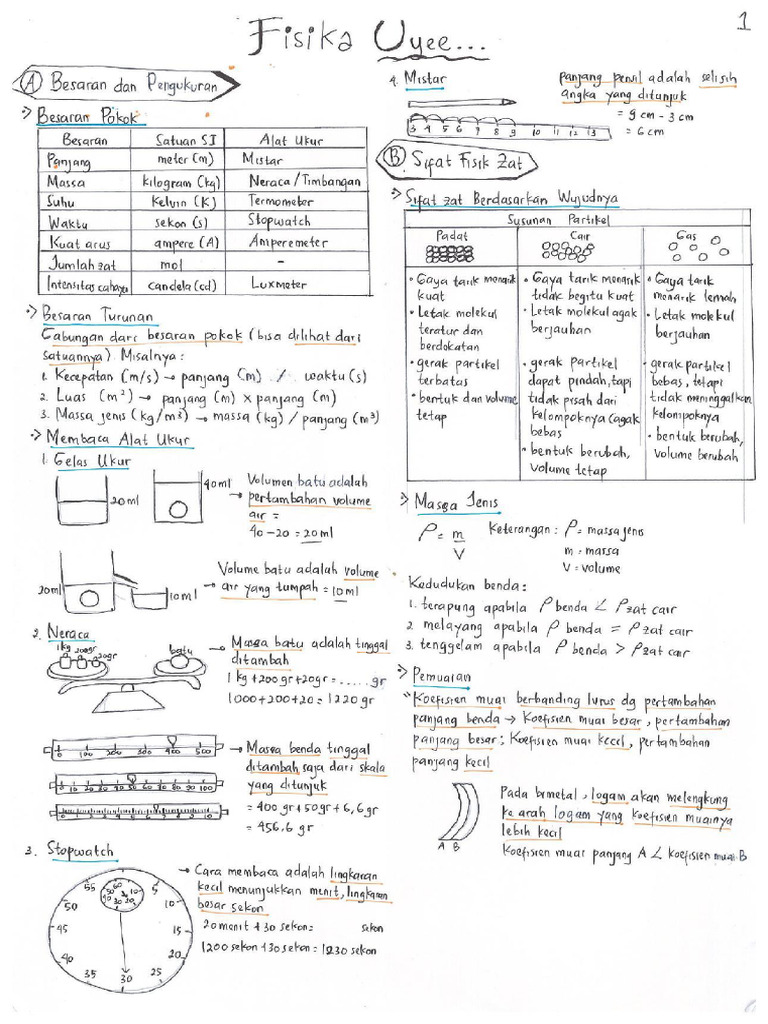 1
Fisika Uyee...
A Besaran dan Pengukuran
Besaran Pokok
Besaran Satuan SI Alat Ukur
Panjang meter (m) Mistar
Massa kilogram (kg) Neraca / Timbangan
Suhu Kelvin (K) Termometer
Waktu sekon (s) Stopwatch
Kuat arus ampere (A) Amperemeter
Jumlah zat mol -
Intensitas cahaya candela (cd) Luxmeter
Besaran Turunan
Gabungan dari besaran pokok (bisa dilihat dari
satuannya). Misalnya :
1. Kecepatan (m/s) → panjang (m) / waktu (s)
2. Luas (m²) → panjang (m) x panjang (m)
3. Massa jenis (kg/m³) → massa (kg) / panjang (m³)
Membaca Alat Ukur
1. Gelas Ukur
20 ml
40 ml
Volumen batu adalah
pertambahan volume
air =
40 - 20 = 20 ml
20 ml
10 ml
Volume batu adalah volume
air yang tumpah = 10 ml
2. Neraca
1 kg 200gr 20gr batu
Massa batu adalah tinggal
ditambah
1 kg + 200 gr + 20gr = ...... gr
1000 + 200 + 20 = 1220 gr
0 100 200 300 400 500
0 10 20 30 40 50 60 70 80 90 100
0 1 2 3 4 5 6 7 8 9 10
Massa benda tinggal
ditambah saja dari skala
yang ditunjuk
= 400 gr + 50 gr + 6,6 gr
= 456,6 gr
3. Stopwatch
55 5
50 10
45 15
40 20
35 30 25
60 10 20 30 40 50
Cara membaca adalah lingkaran
kecil menunjukkan menit, lingkaran
besar sekon
20 menit + 30 sekon = sekon
1200 sekon + 30 sekon = 1230 sekon
4. Mistar
3 4 5 6 7 8 9 10 11 12 13
panjang pensil adalah selisih
angka yang ditunjuk
= 9 cm - 3 cm
= 6 cm
B Sifat Fisik Zat
Sifat zat Berdasarkan Wujudnya
Susunan Partikel
Padat Cair Gas
• Gaya tarik menarik
kuat
• Letak molekul
teratur dan
berdekatan
• gerak partikel
terbatas
• bentuk dan volume
tetap
• Gaya tarik menarik
tidak begitu kuat
• Letak molekul agak
berjauhan
• gerak partikel
dapat pindah, tapi
tidak pisah dari
kelompoknya (agak
bebas
• bentuk berubah,
volume tetap
• Gaya tarik
menarik lemah
• Letak molekul
berjauhan
• gerak partikel
bebas, tetapi
tidak meninggalkan
kelompoknya
• bentuk berubah,
volume berubah
Massa Jenis
ρ = m
V
Keterangan : ρ = massa jenis
m = massa
V = volume
Kedudukan benda :
1. terapung apabila ρ benda < ρ zat cair
2. melayang apabila ρ benda = ρ zat cair
3. tenggelam apabila ρ benda > ρ zat cair
Pemuaian
"Koefisien muai berbanding lurus dg pertambahan
panjang benda → Koefisien muai besar, pertambahan
panjang besar; Koefisien muai kecil, pertambahan
panjang kecil
A B
Pada bimetal, logam akan melengkung
ke arah logam yang koefisien muainya
lebih kecil
Koefisien muai panjang A < koefisien muai B